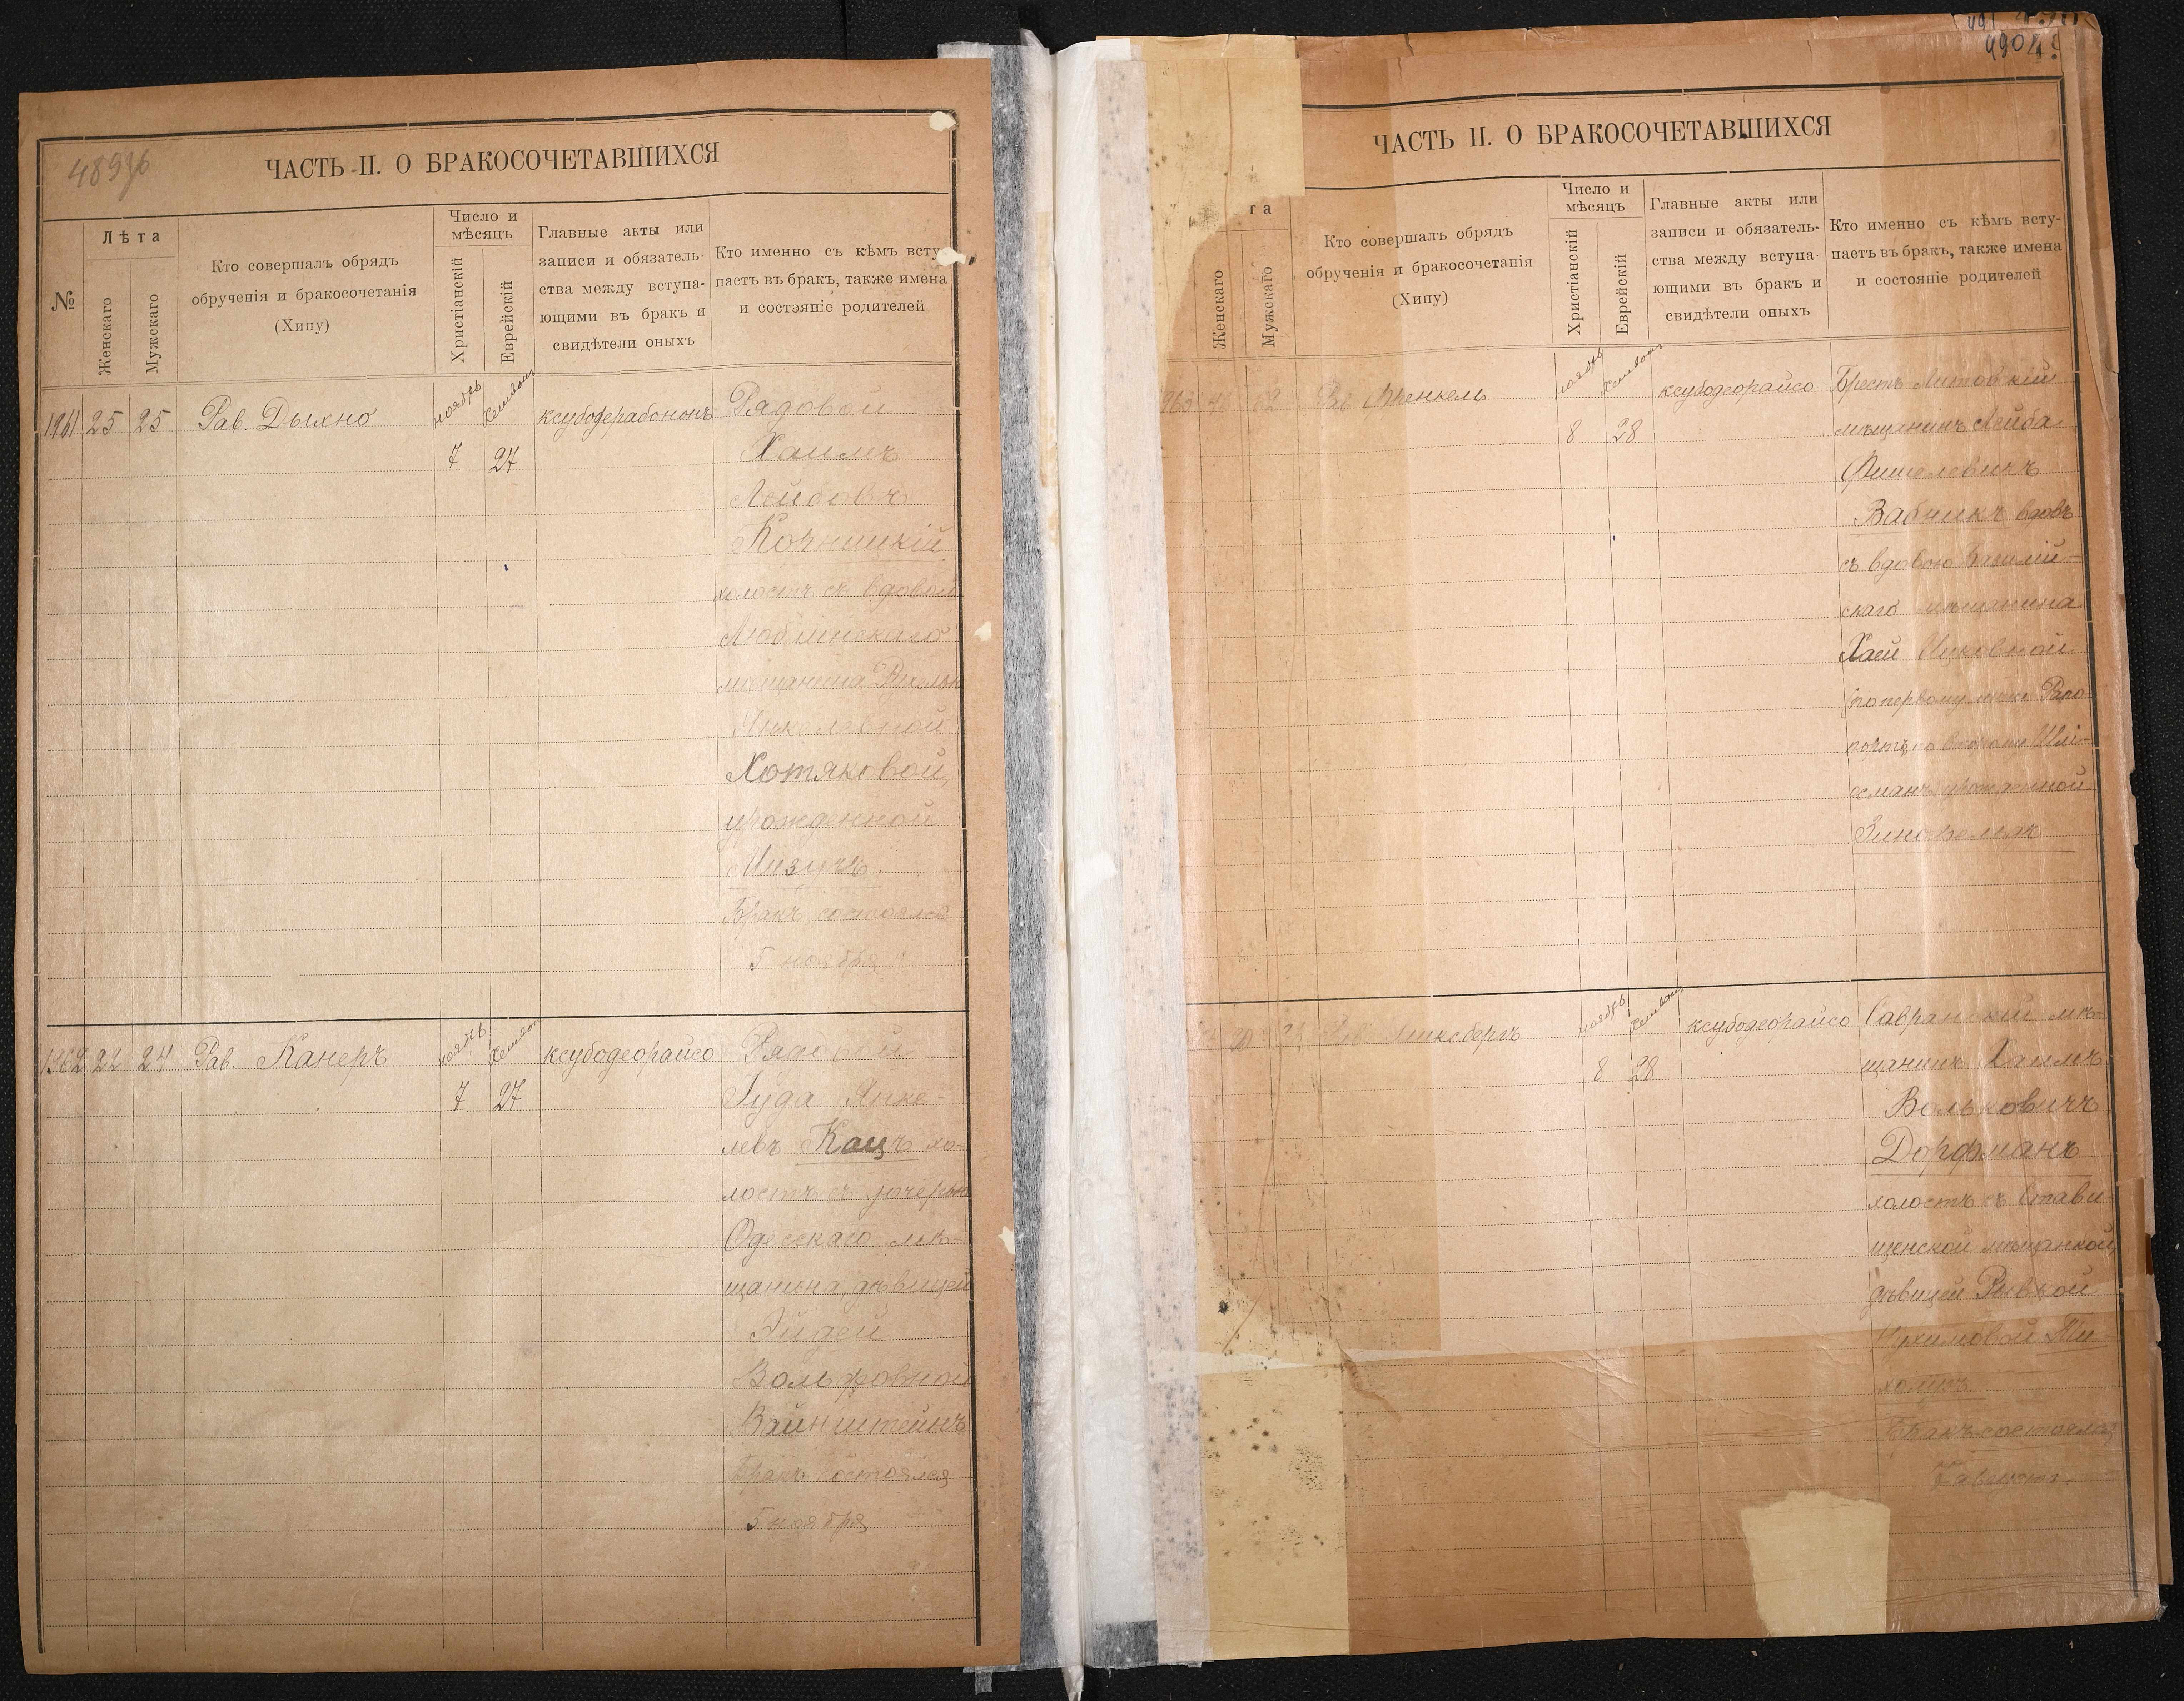 ЧАСТЬ II. О БРАКОСОЧЕТАВШИХСЯ
№
Лѣта
Женскаго
Мужскаго
Кто совершалъ обрядъ
обрученія и бракосочетанія
(Хипу)
Число и
мѣсяцъ
Христіанскій
Еврейскій
Главные акты или
записи и обязатель-
ства между вступа-
ющими въ бракъ и
свидѣтели оныхъ
Кто именно съ кѣмъ всту-
паетъ въ бракъ, также имена
и состояніе родителей
1961 25 25 Рав. Дыхно ноябрь Хешвонъ ксубодерабононъ Рядовой
7 27 Хаимъ
Лейбовъ
Кочницкій
холостъ съ вдовой
Люблинскаго
мѣщанина Рухелью
Янкелевной
Хотяковой,
урожденной
Мизичъ.
Бракъ состоялся
5 ноября
1962 22 24 Рав. Канеръ ноябрь Хешвонъ ксубодеорайсо Рядовой
7 27 Іуда Янке-
левъ Кацъ хо-
лостъ съ дочерью
Одесскаго мѣ-
щанина, дѣвицей
Эйдей
Вольфовной
Вайнштейнъ
Бракъ состоялся
5 ноября
4904
ЧАСТЬ II. О БРАКОСОЧЕТАВШИХСЯ
та
Женскаго
Мужскаго
Кто совершалъ обрядъ
обрученія и бракосочетанія
(Хипу)
Число и
мѣсяцъ
Христіанскій
Еврейскій
Главные акты или
записи и обязатель-
ства между вступа-
ющими въ бракъ и
свидѣтели оныхъ
Кто именно съ кѣмъ всту-
паетъ въ бракъ, также имена
и состояніе родителей
Рав. Френкель ноябрь Хешвонъ ксубодеорайсо Брестъ Литовскій
8 28 мѣщанинъ Лейба
Фишелевичъ
Вабникъ вдовъ
съ вдовою
скаго мѣщанина
Хаей Ицковной
(по первому мужу Рапо-
портъ, по второму
урожденной
ноябрь Хешвонъ ксубодеорайсо Савранскій мѣ-
8 28 щанинъ Хаимъ
Вольковичъ
Дорфманъ
холостъ съ Стави-
щенской мѣщанкой,
дѣвицей Рывкой
Бракъ состоялся
7 августа.